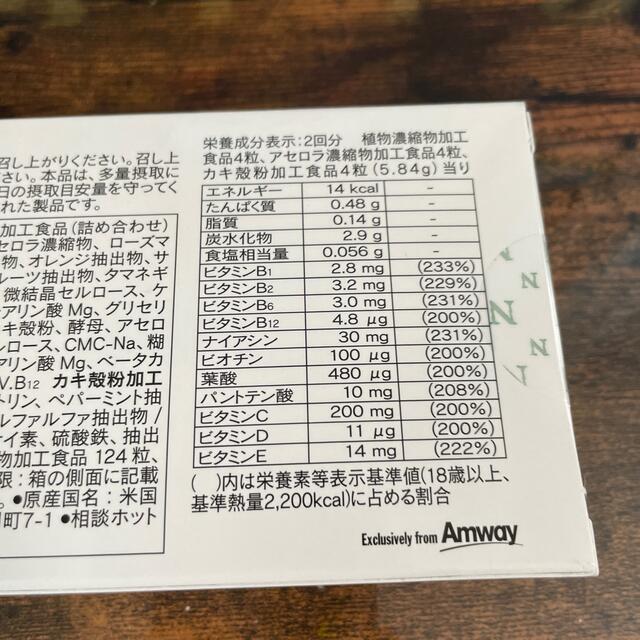 召し上がりください。召し上
さい。本品は、多量摂取に
日の摂取目安量を守ってく
れた製品です。
加工食品(詰め合わせ)
セロラ濃縮物、ローズマ
物、オレンジ抽出物、サ
ルーツ抽出物、タマネギ
微結晶セルロース、ケ
アリン酸 Mg、グリセリ
キ殻粉、酵母、アセロ
ルロース、CMC-Na、糊
アリン酸 Mg、ベータカ
V.B12 カキ殻粉加工
トリン、ペパーミント抽
ルファルファ抽出物 /
イ素、硫酸鉄、抽出
物加工食品 124 粒、
限:箱の側面に記載
。●原産国名:米国
町7-1 ●相談ホット
栄養成分表示:2回分 植物濃縮物加工
食品4粒、アセロラ濃縮物加工食品4粒、
カキ殻粉加工食品4粒(5.84g)当り
エネルギー 14 kcal -
たんぱく質 0.48 g -
脂質 0.14 g -
炭水化物 2.9 g -
食塩相当量 0.056 g -
ビタミンB1 2.8 mg (233%)
ビタミンB2 3.2 mg (229%)
ビタミンB6 3.0 mg (231%)
ビタミンB12 4.8 μg (200%)
ナイアシン 30 mg (231%)
ビオチン 100 μg (200%)
葉酸 480 μg (200%)
パントテン酸 10 mg (208%)
ビタミンC 200 mg (200%)
ビタミンD 11 μg (200%)
ビタミンE 14 mg (222%)
( )内は栄養素等表示基準値(18歳以上、
基準熱量2,200kcal)に占める割合
Exclusively from Amway
N
N
N
N